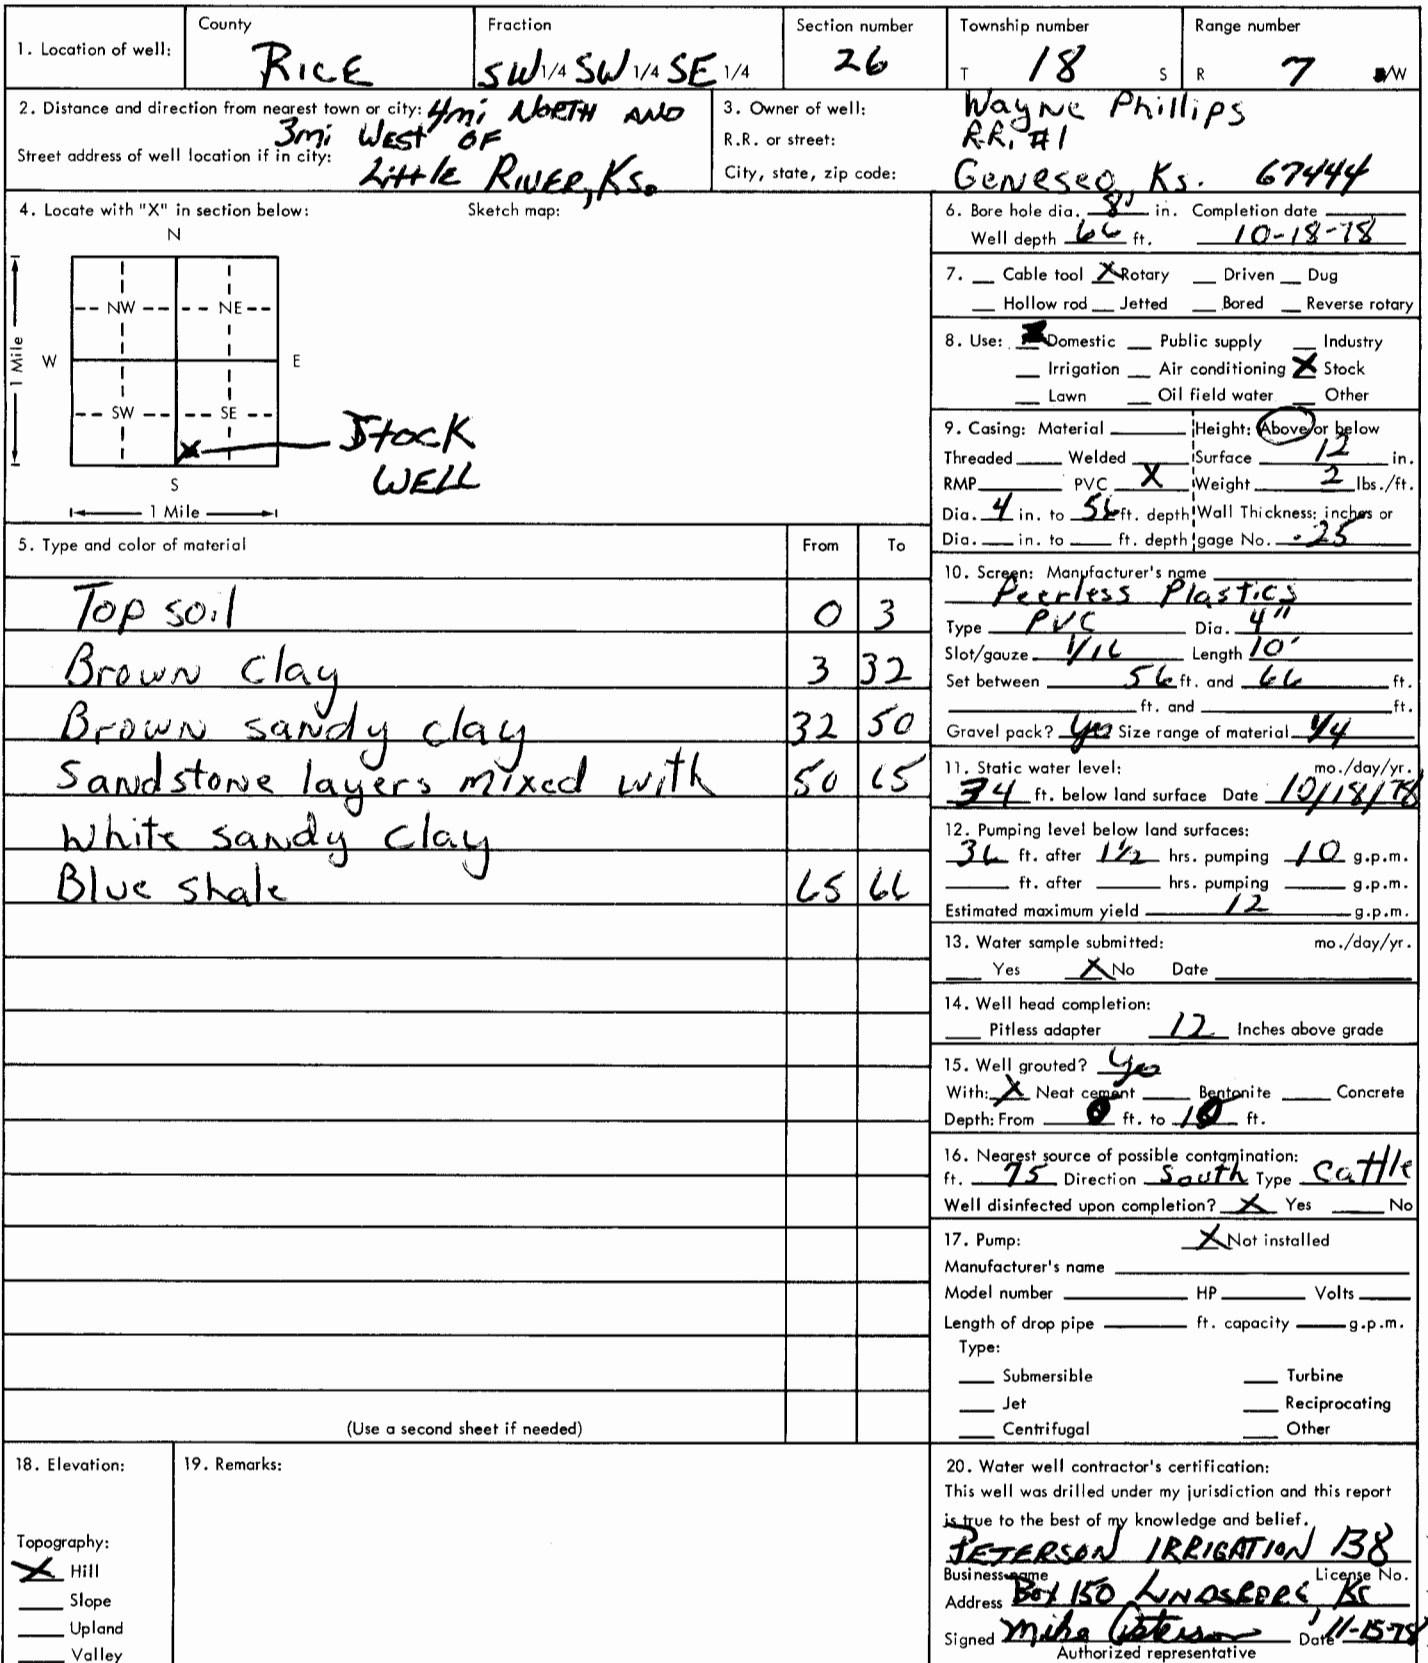 1. Location of well: County RICE Fraction SW 1/4 SW 1/4 SE 1/4 Section number 26 Township number T 18 S Range number R 7 E/W
2. Distance and direction from nearest town or city: 4mi NORTH AND
3mi WEST OF
Street address of well location if in city:
Little RIVER, Ks.
3. Owner of well: Wayne Phillips
R.R. or street: R.R. #1
City, state, zip code: Geneseo, Ks. 67444
4. Locate with "X" in section below: Sketch map:
N
NW NE
W E
1 Mile
SW SE
X STOCK
WELL
S
1 Mile
5. Type and color of material From To
Top soil 0 3
Brown clay 3 32
Brown sandy clay 32 50
Sandstone layers mixed with 50 65
White sandy clay
Blue shale 65 66
(Use a second sheet if needed)
6. Bore hole dia. 8" in. Completion date
Well depth 66 ft. 10-18-78
7. Cable tool X Rotary Driven Dug
Hollow rod Jetted Bored Reverse rotary
8. Use: Domestic Public supply Industry
Irrigation Air conditioning X Stock
Lawn Oil field water Other
9. Casing: Material Height: Above or below
Threaded Welded Surface 12 in.
RMP PVC X Weight 2 lbs./ft.
Dia. 4 in. to 56 ft. depth Wall Thickness: inches or
Dia. in. to ft. depth gage No. .25
10. Screen: Manufacturer's name
Peerless Plastics
Type PVC Dia. 4"
Slot/gauze 1/16 Length 10'
Set between 56 ft. and 66 ft.
ft. and ft.
Gravel pack? yes Size range of material 1/4
11. Static water level: mo./day/yr.
34 ft. below land surface Date 10/18/78
12. Pumping level below land surfaces:
36 ft. after 1 1/2 hrs. pumping 10 g.p.m.
ft. after hrs. pumping g.p.m.
Estimated maximum yield 12 g.p.m.
13. Water sample submitted: mo./day/yr.
Yes X No Date
14. Well head completion:
Pitless adapter 12 Inches above grade
15. Well grouted? yes
With: X Neat cement Bentonite Concrete
Depth: From 0 ft. to 10 ft.
16. Nearest source of possible contamination:
ft. 75 Direction South Type Cattle
Well disinfected upon completion? X Yes No
17. Pump: X Not installed
Manufacturer's name
Model number HP Volts
Length of drop pipe ft. capacity g.p.m.
Type:
Submersible Turbine
Jet Reciprocating
Centrifugal Other
18. Elevation:
Topography:
X Hill
Slope
Upland
Valley
19. Remarks:
20. Water well contractor's certification:
This well was drilled under my jurisdiction and this report
is true to the best of my knowledge and belief.
PETERSON IRRIGATION 138
Business name License No.
Address Box 150 LINDSBORG, KS
Signed Mike Peterson Date 11-15-78
Authorized representative